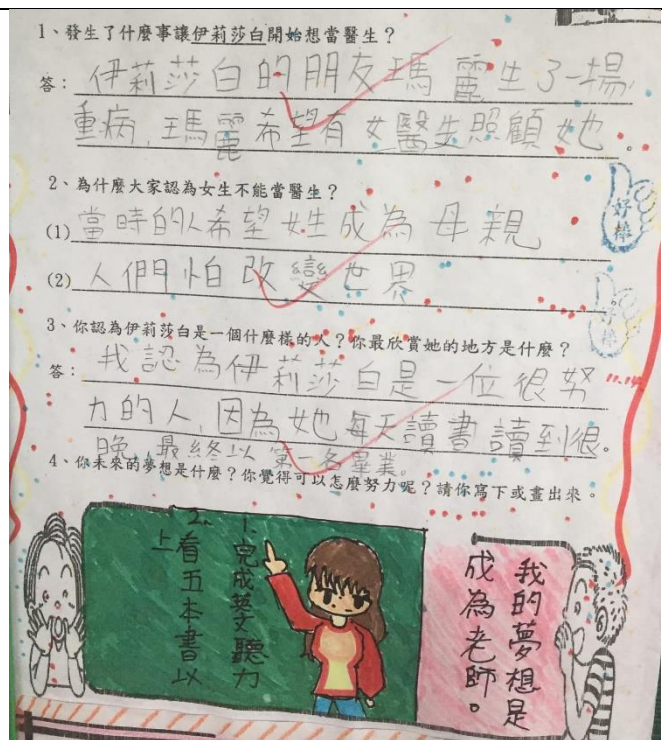 1、發生了什麼事讓伊莉莎白開始想當醫生？
答：伊莉莎白的朋友瑪麗生了一場
重病，瑪麗希望有女醫生照顧她。
2、為什麼大家認為女生不能當醫生？
(1)當時的人希望女生成為母親
(2)人們怕改變世界
3、你認為伊莉莎白是一個什麼樣的人？你最欣賞她的地方是什麼？
答：我認為伊莉莎白是一位很努
力的人，因為她每天讀書讀到很
晚，最終以第一名畢業。
4、你未來的夢想是什麼？你覺得可以怎麼努力呢？請你寫下或畫出來。
我的夢想是
成為老師。
1.完成英文聽力
2.看五本書以
上
好棒
好棒
11.14